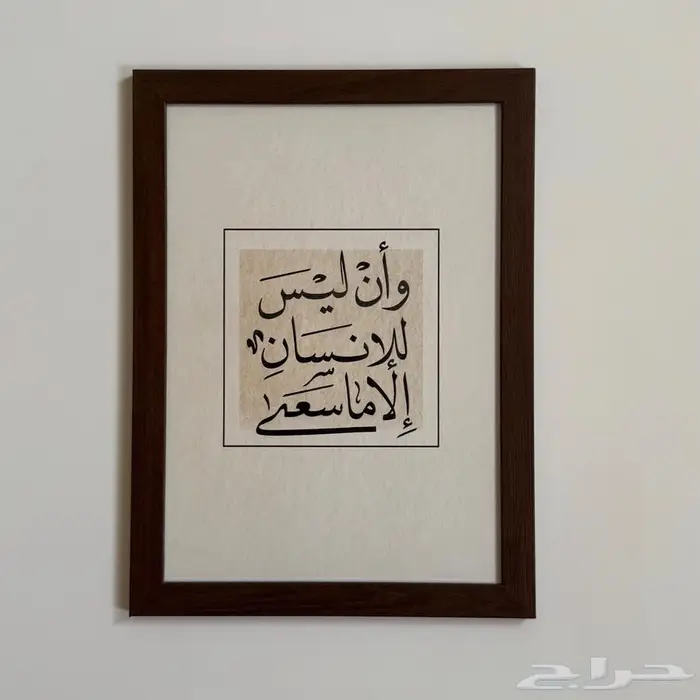 وأنْ ليْسَ
للإنسَانِ
إلا ما سَعَى
حراج